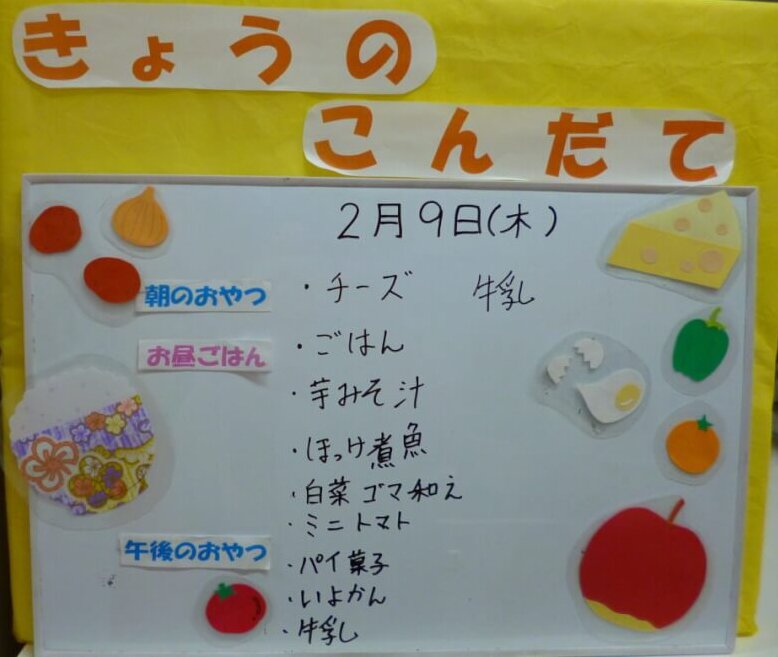 きょうの
こんだて
2月9日(木)
朝のおやつ ・チーズ 牛乳
お昼ごはん ・ごはん
・芋みそ汁
・ほっけ煮魚
・白菜ゴマ和え
・ミニトマト
午後のおやつ ・パイ菓子
・いよかん
・牛乳